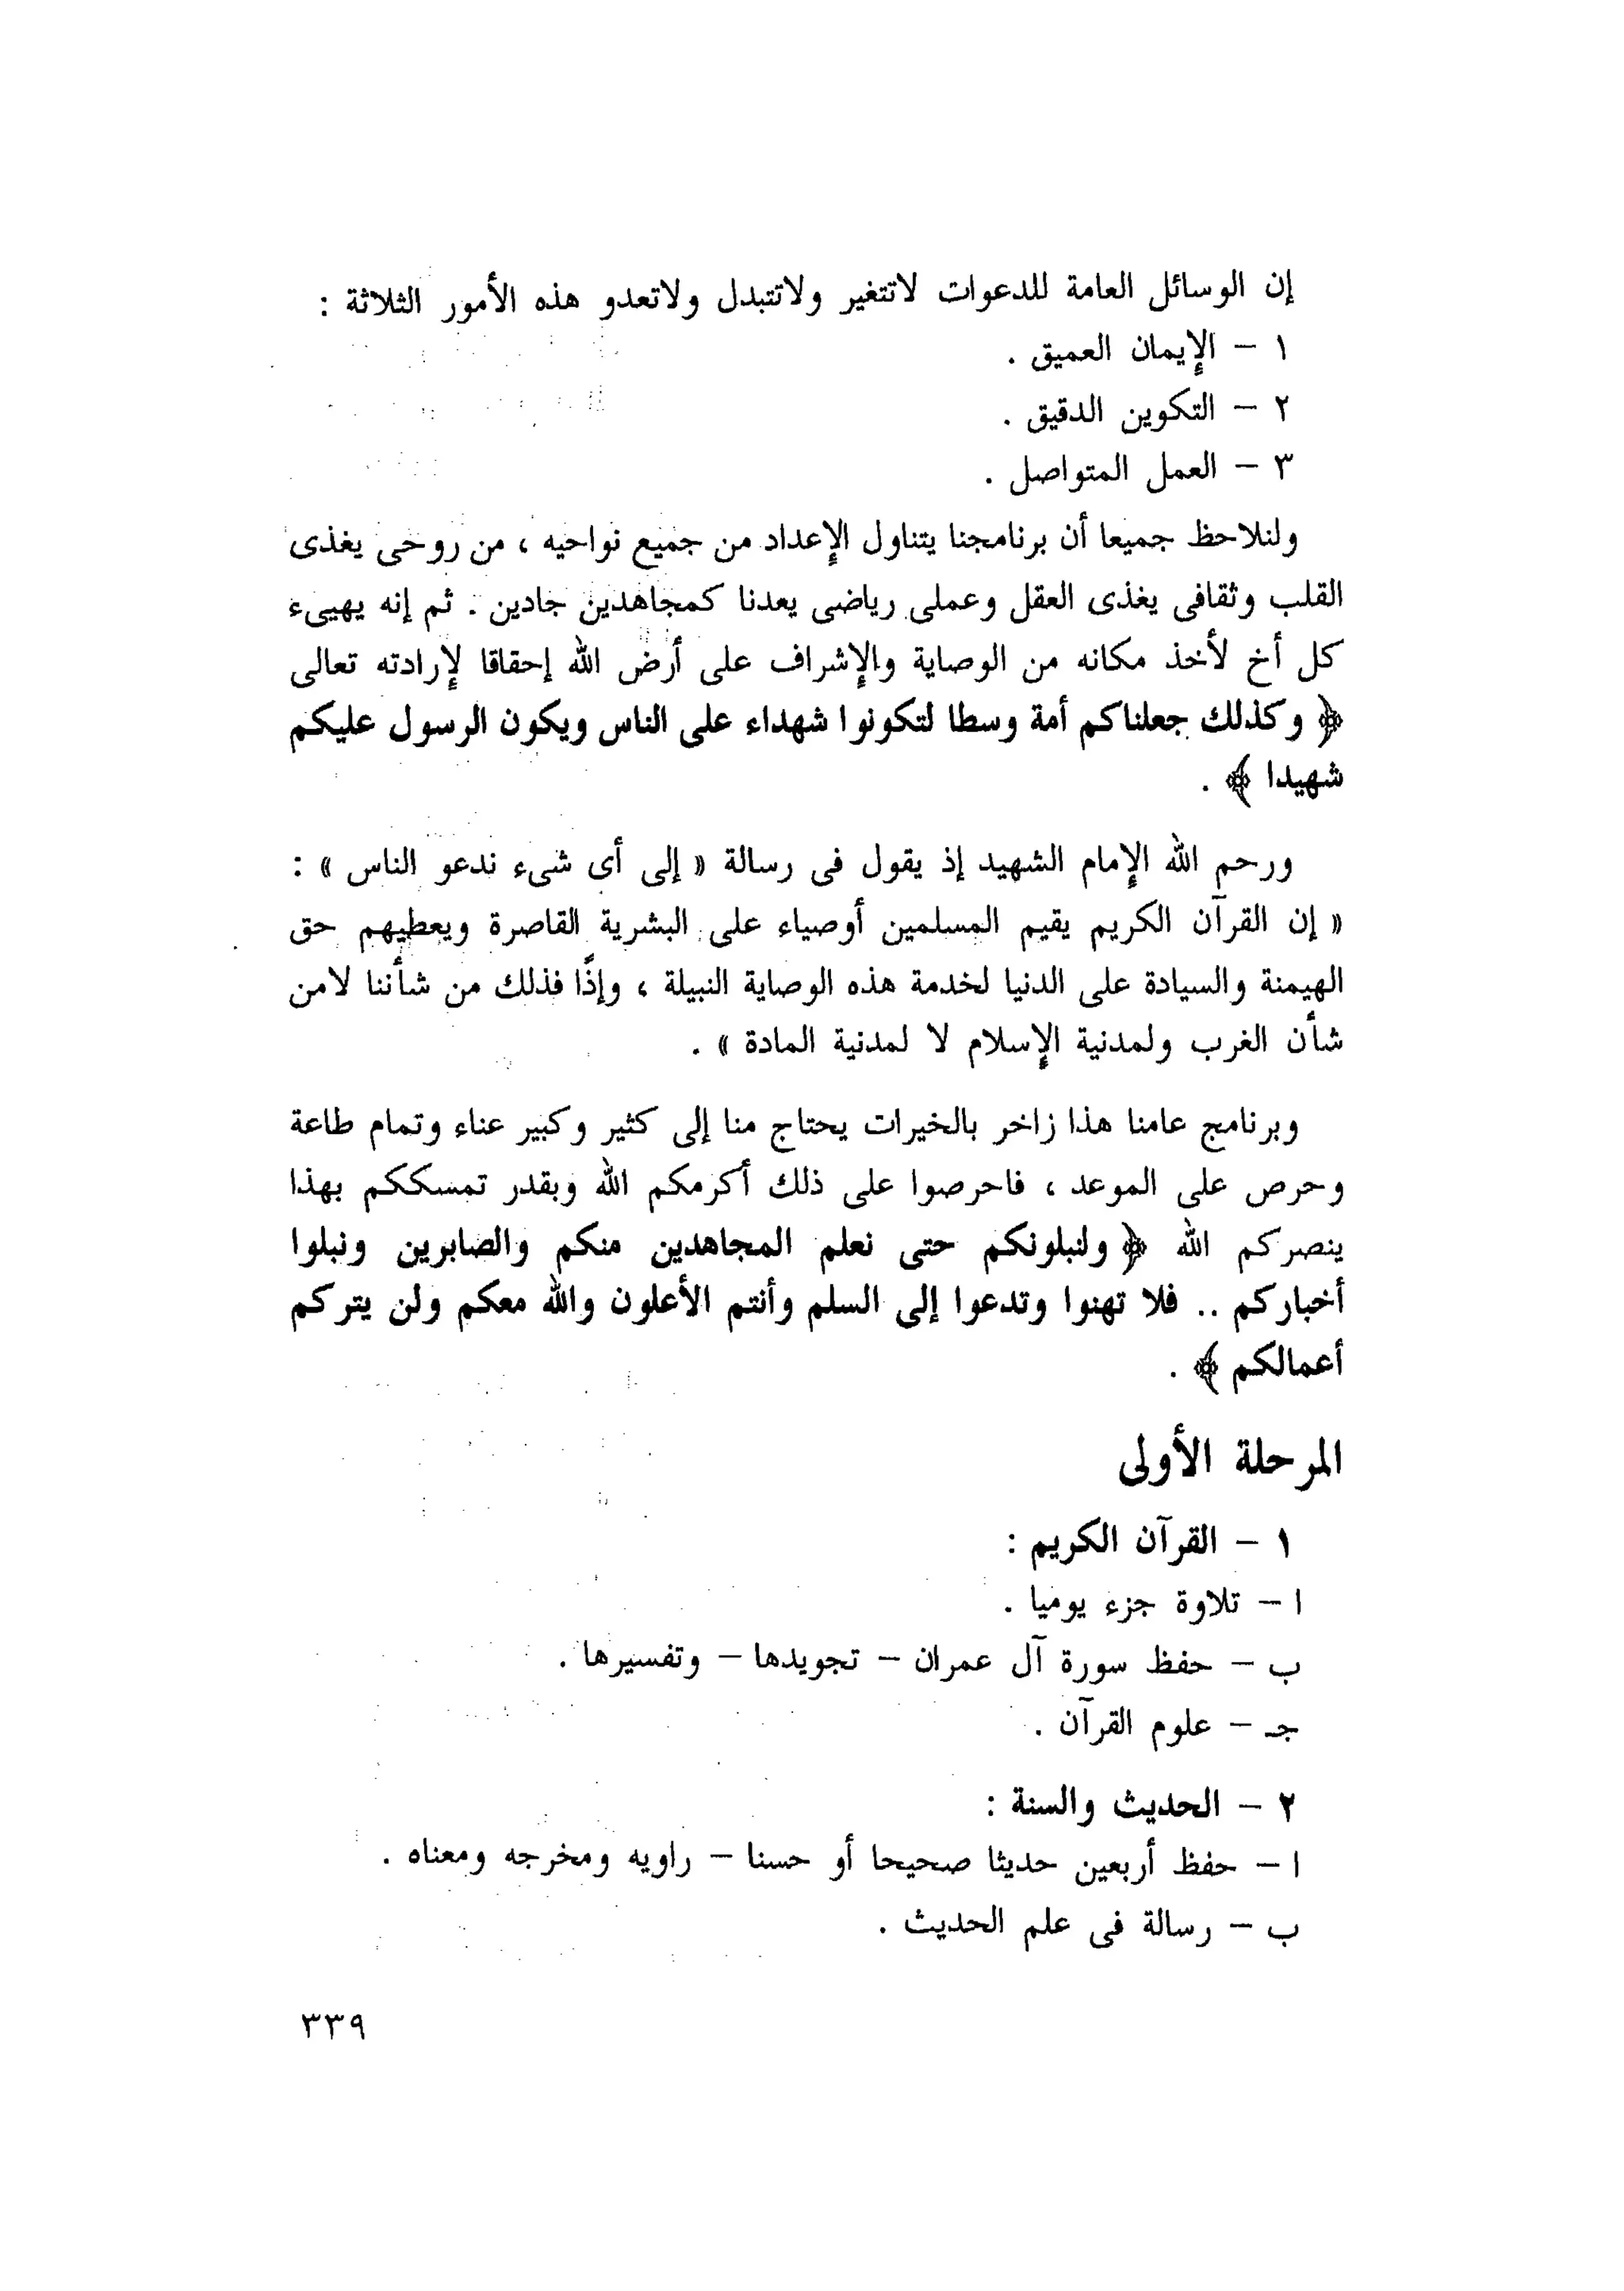 إن الوسائل العامة للدعوات لاتتغير ولاتتبدل ولاتعدو هذه الأمور الثلاثة :
١ – الإيمان العميق .
٢ – التكوين الدقيق .
٣ – العمل المتواصل .
ولنلاحظ جميعا أن برنامجنا يتناول الإعداد من جميع نواحيه ، من روحى يغذى
القلب وثقافى يغذى العقل وعملى رياضى يعدنا كمجاهدين جادين . ثم إنه يهيىء
كل أخ لأخذ مكانه من الوصاية والإشراف على أرض الله إحقاقا لإرادته تعالى
﴿ وكذلك جعلناكم أمة وسطا لتكونوا شهداء على الناس ويكون الرسول عليكم
شهيدا ﴾ .
ورحم الله الإمام الشهيد إذ يقول فى رسالة « إلى أى شىء ندعو الناس » :
« إن القرآن الكريم يقيم المسلمين أوصياء على البشرية القاصرة ويعطيهم حق
الهيمنة والسيادة على الدنيا لخدمة هذه الوصاية النبيلة ، وإذًا فذلك من شأننا لامن
شأن الغرب ولمدنية الإسلام لا لمدنية المادة » .
وبرنامج عامنا هذا زاخر بالخيرات يحتاج منا إلى كثير وكبير عناء وتمام طاعة
وحرص على الموعد ، فاحرصوا على ذلك أكرمكم الله وبقدر تمسككم بهذا
ينصركم الله ﴿ ولنبلونكم حتى نعلم المجاهدين منكم والصابرين ونبلوا
أخباركم .. فلا تهنوا وتدعوا إلى السلم وأنتم الأعلون والله معكم ولن يتركم
أعمالكم ﴾ .
المرحلة الأولى
١ – القرآن الكريم :
ا – تلاوة جزء يوميا .
ب – حفظ سورة آل عمران – تجويدها – وتفسيرها .
جـ – علوم القرآن .
٢ – الحديث والسنة :
ا – حفظ أربعين حديثا صحيحا أو حسنا – راويه ومخرجه ومعناه .
ب – رسالة فى علم الحديث .
٣٣٩